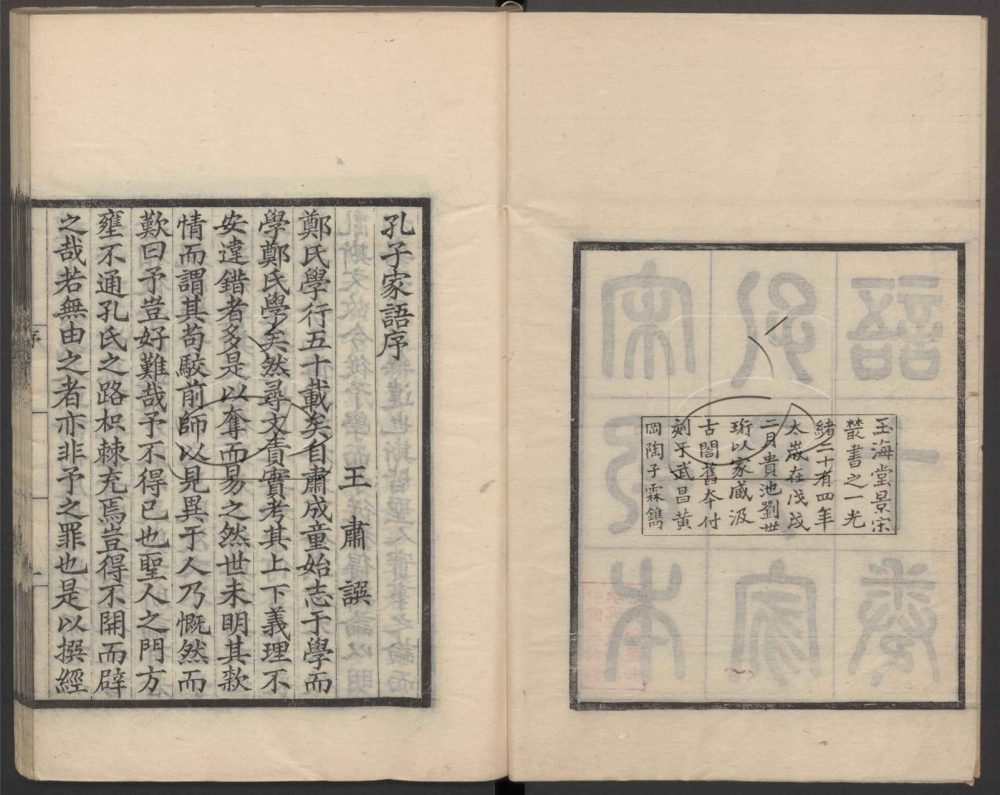 玉海堂景宋
叢書之一光
緒二十有四年
太歲在戊戌
二月貴池劉世
珩以家臧汲
古閣舊本付
刻于武昌黃
岡陶子霖鐫
孔子家語序
王肅譔
鄭氏學行五十載矣自肅成童始志于學而
學鄭氏學矣然尋文責實考其上下義理不
安違錯者多是以奪而易之然世未明其款
情而謂其苟駮前師以見異于人乃慨然而
歎曰予豈好難哉予不得已也聖人之門方
壅不通孔氏之路枳棘充焉豈得不開而辟
之哉若無由之者亦非予之罪也是以撰經
序